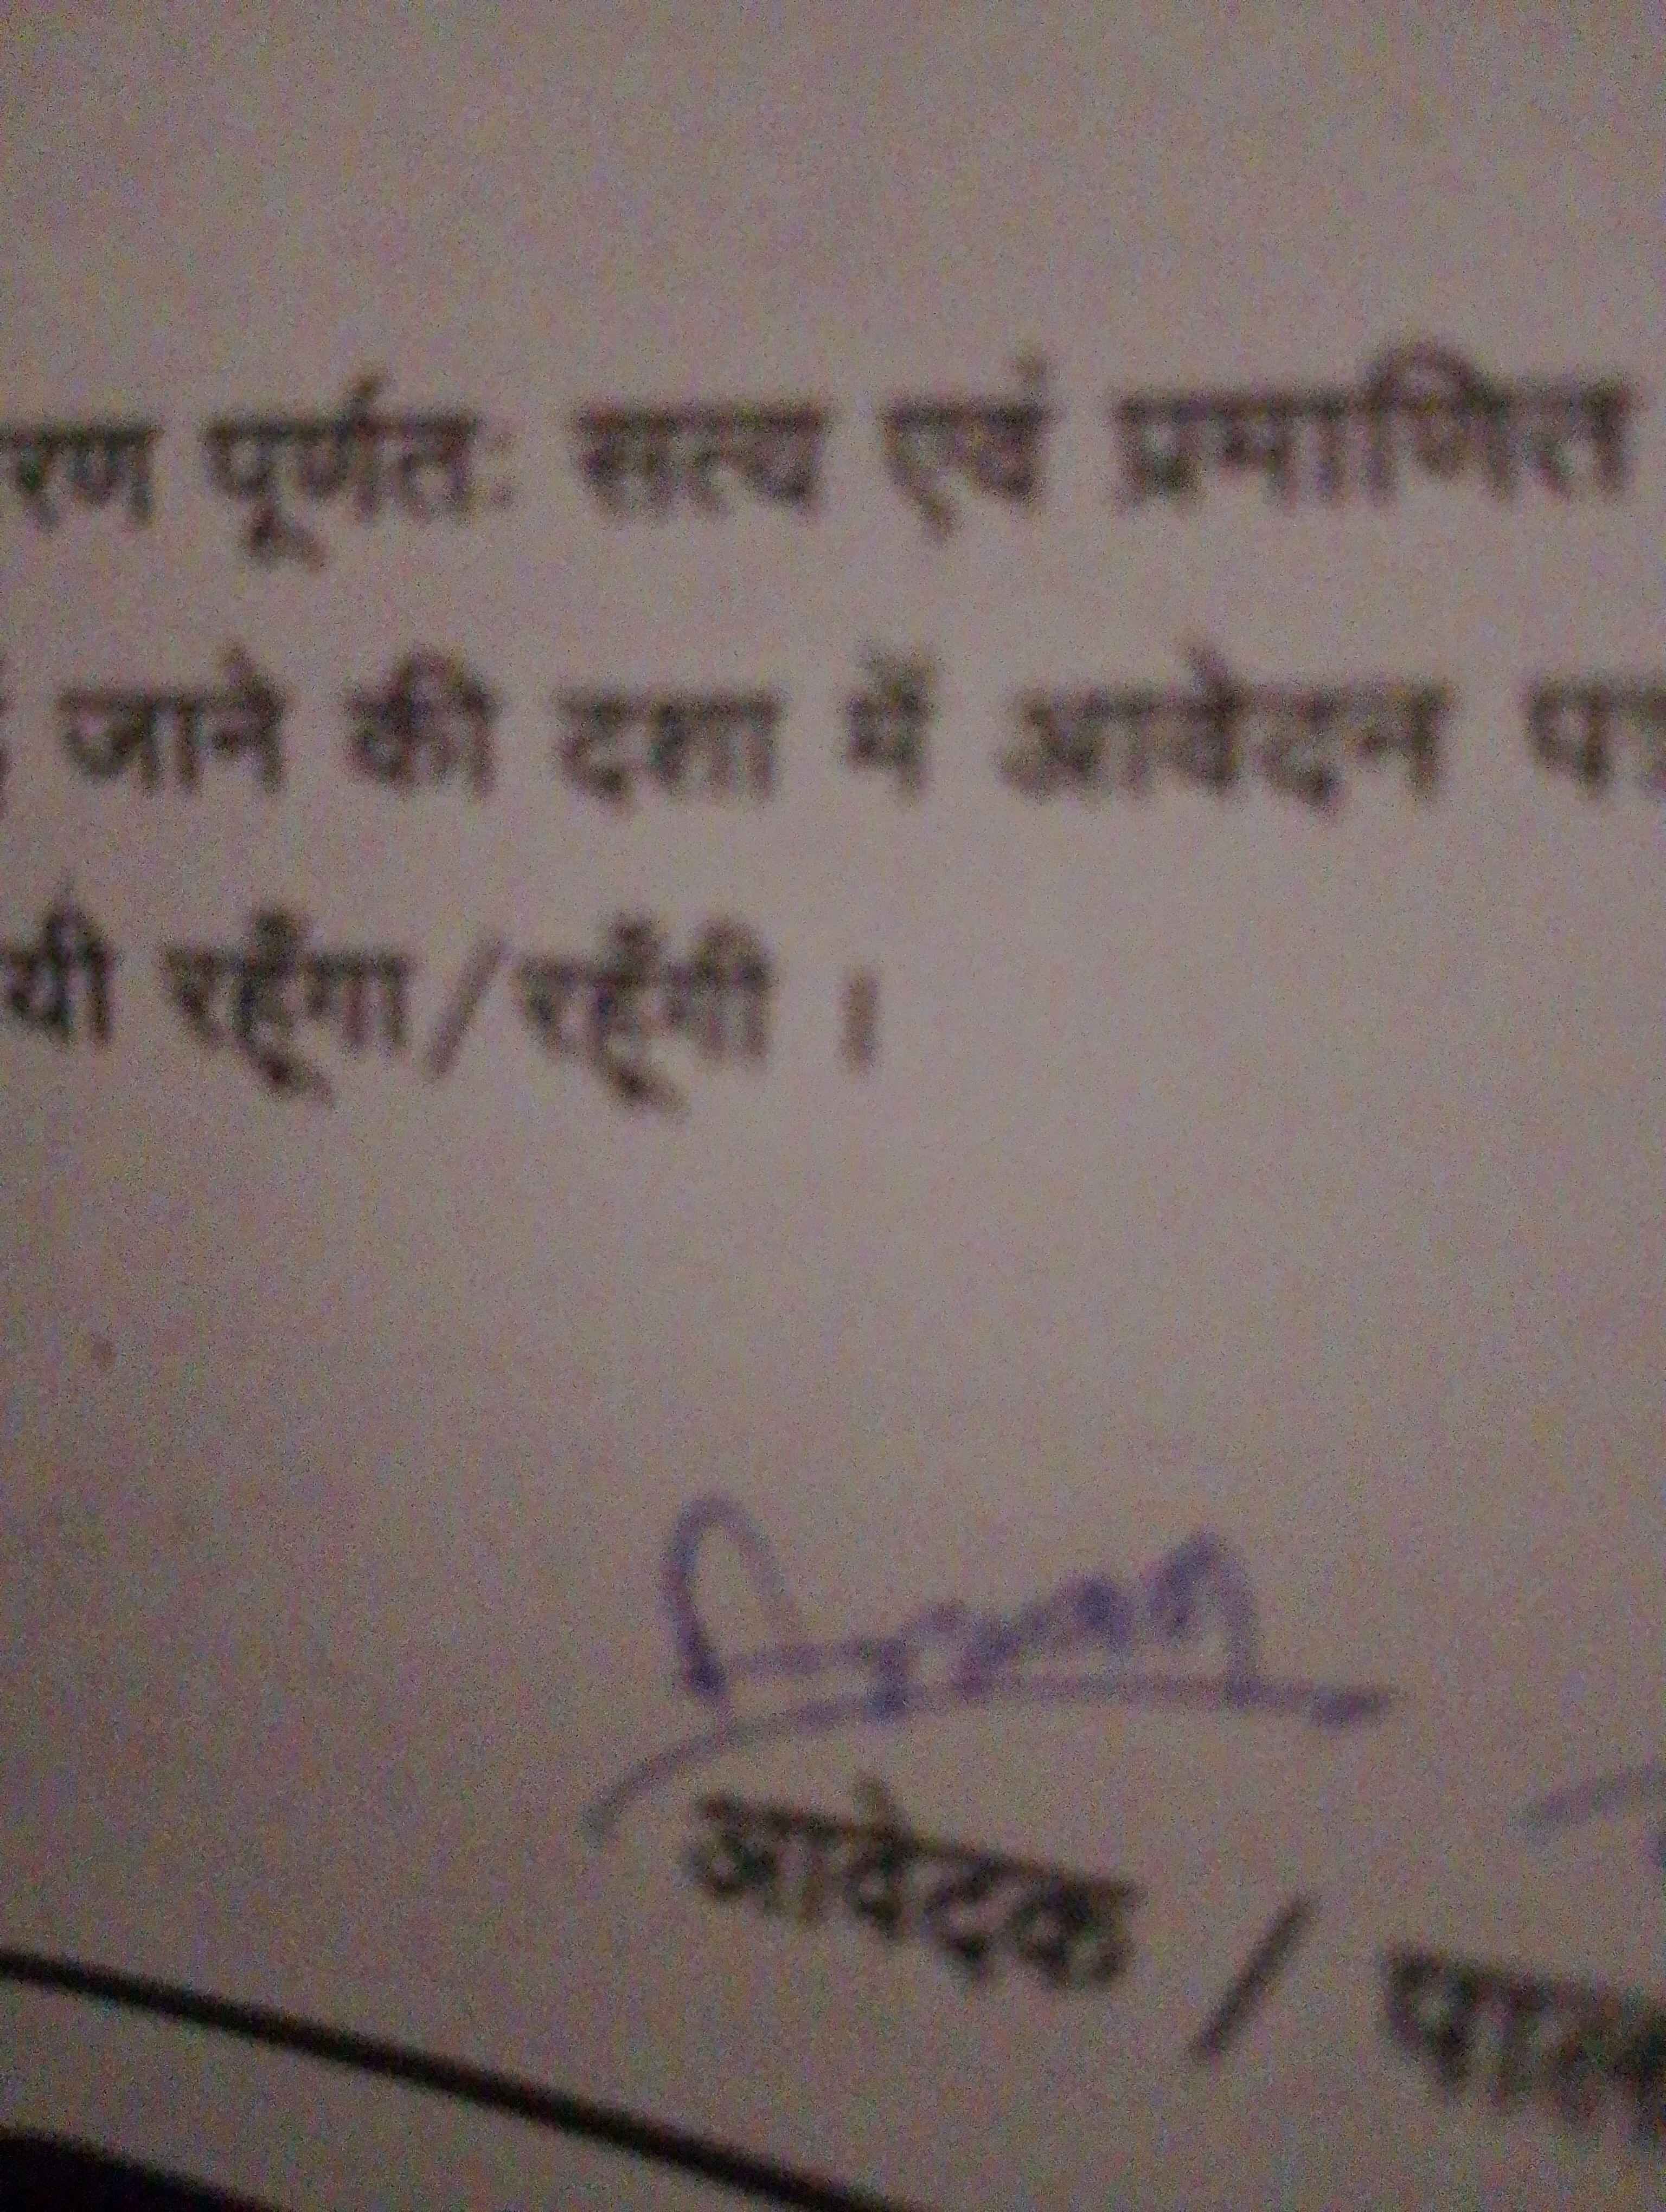 रण पूर्णतः सत्य एवं प्रमाणित
जाने की दशा में आवेदन
यी रहूँगा/रहूँगी ।
आवेदक /